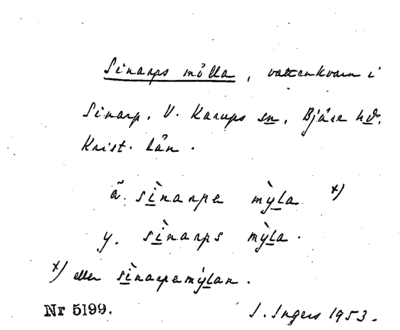 Sinarps mölla, vattenkvarn i
Sinarp, V. Karups sn, Bjäre hd.
Krist. län.
ä. sìnarpe mỳla x)
y. sìnarps mỳla.
x) eller sìnarpemỳlan.
Nr 5199. I. Ingers 1953.